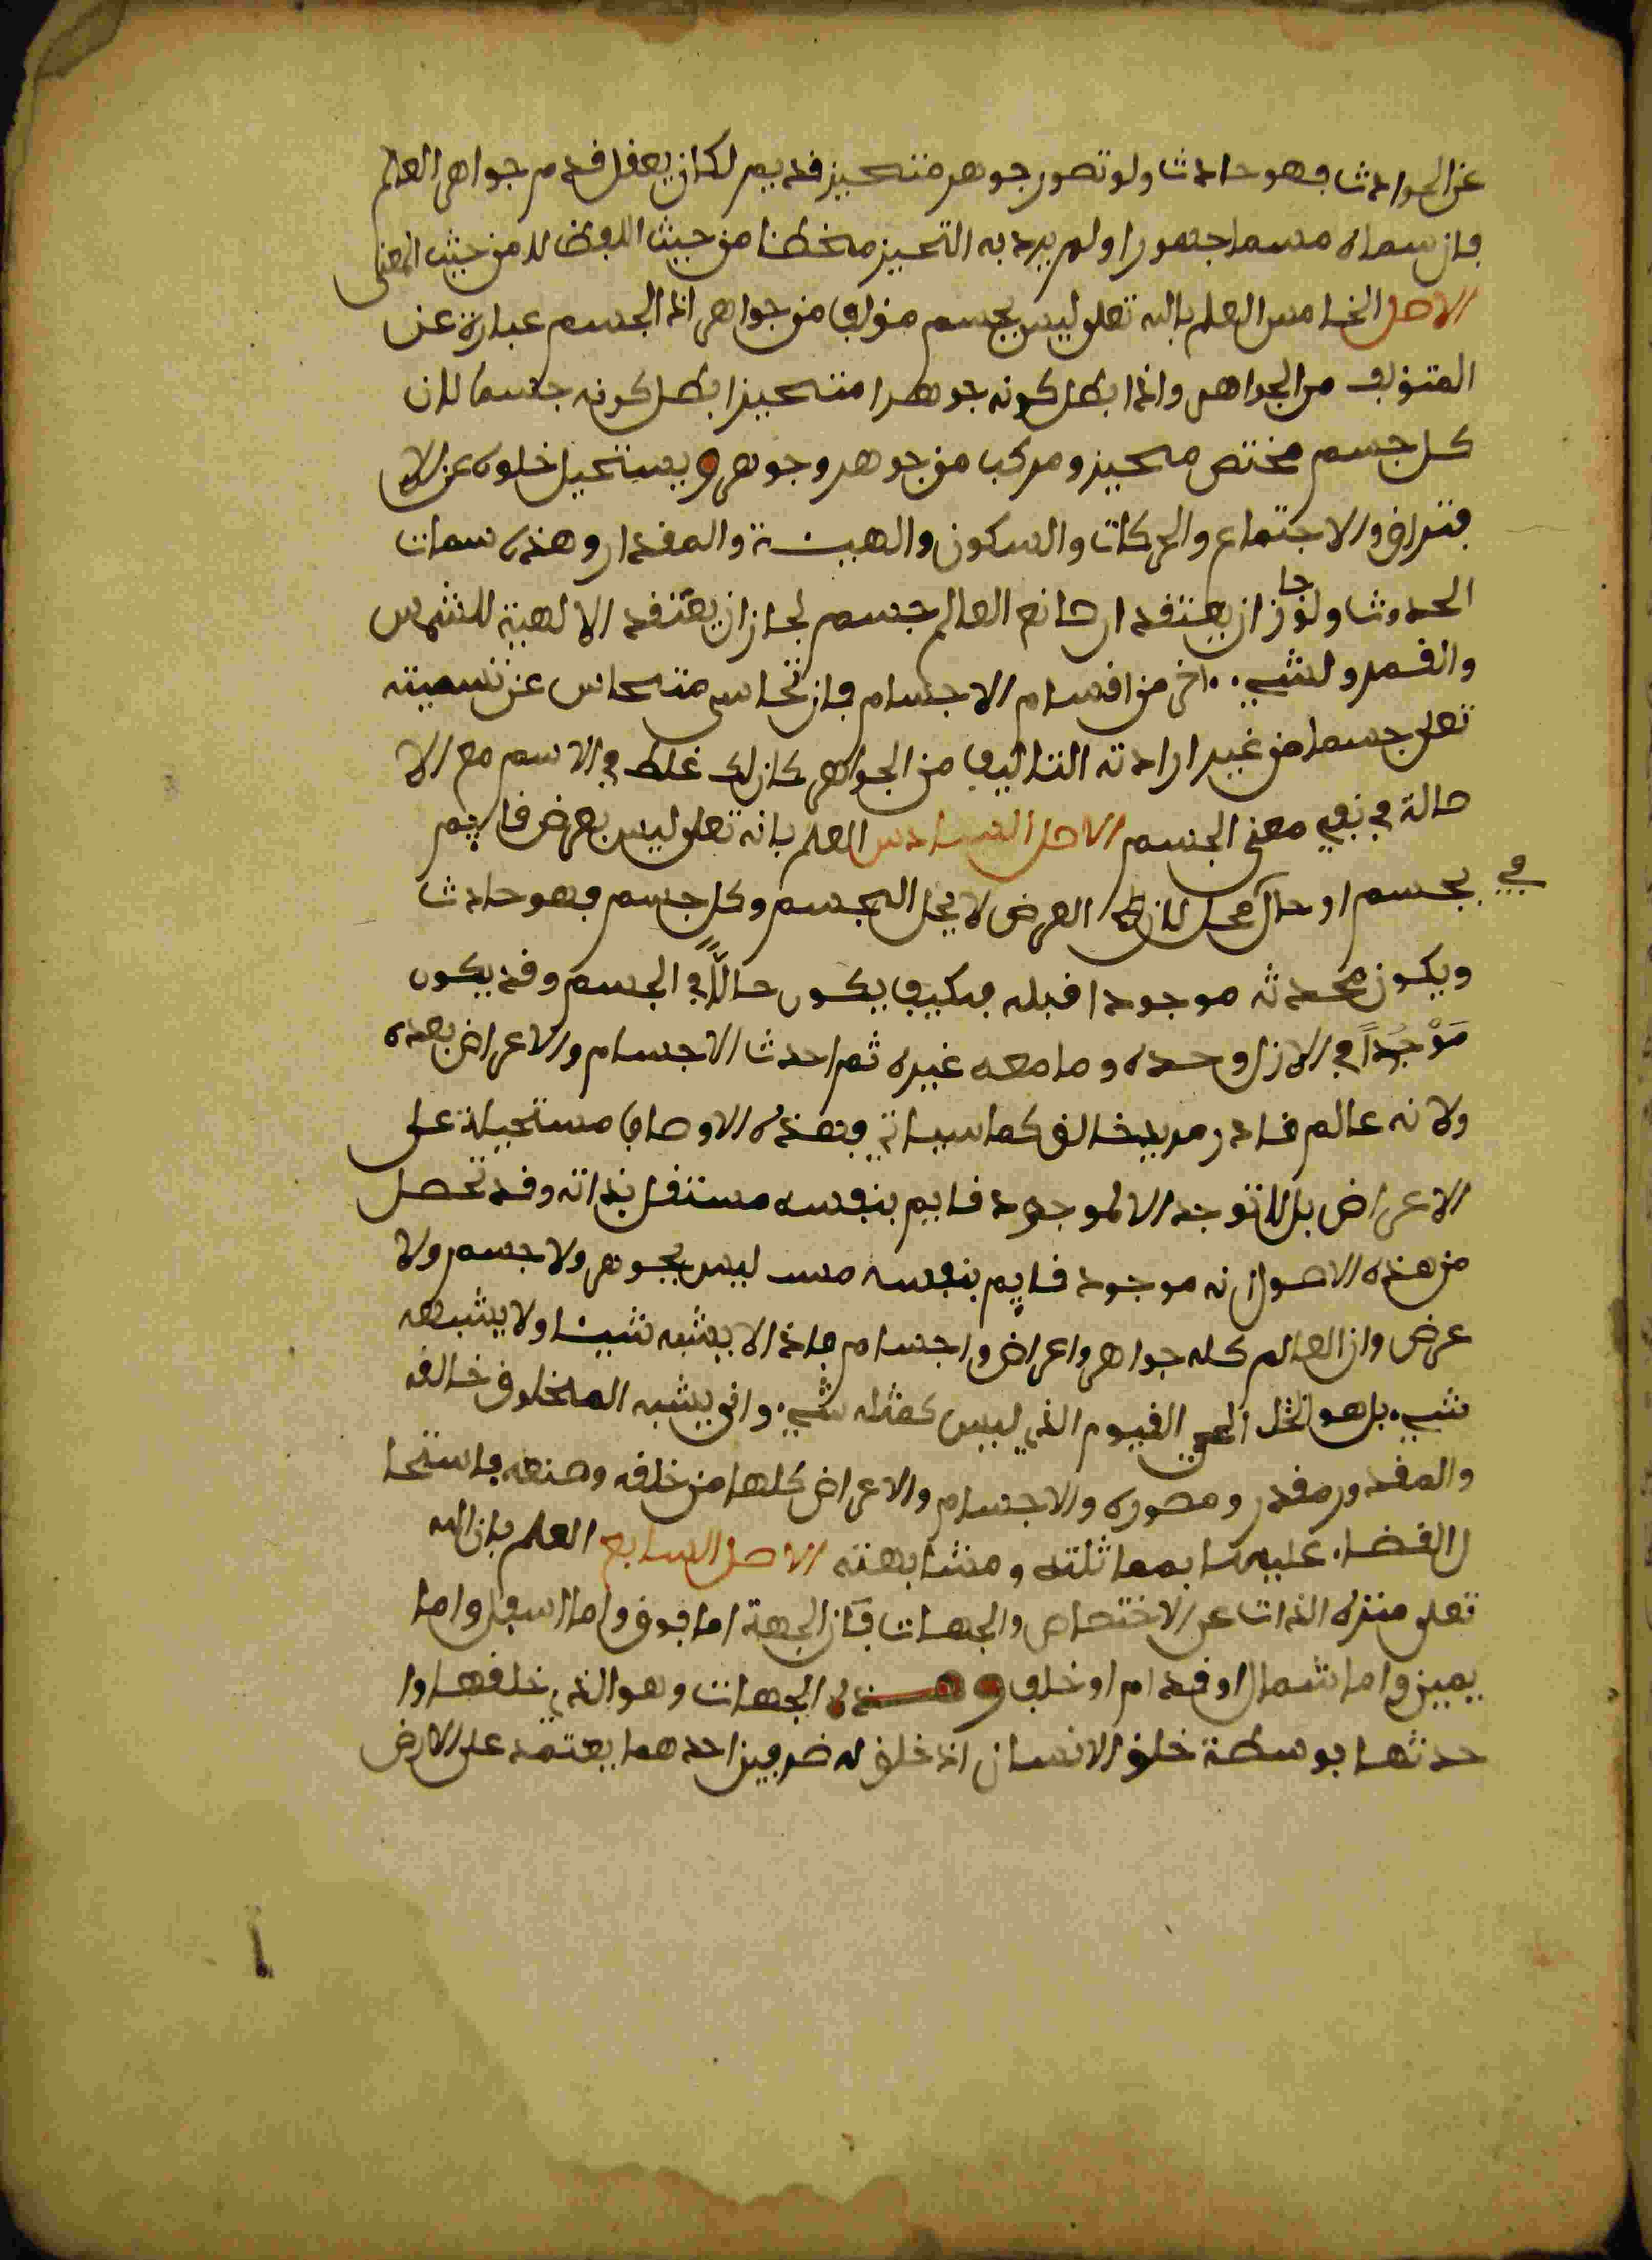 عن الحوادث فهو حادث ولو تصور جوهر متحيز قديم لكان يعقل قدم جواهر العالم
فان سماه مسما جوهرا ولم يرد به التحيز مخطئا من حيث اللفظ لا من حيث المعنى
الاصل الخامس العلم بالله تعلى ليس بجسم مؤلف من جواهر اذ الجسم عبارة عن
المتؤلف من الجواهر واذا بطل كونه جوهرا متحيزا بطل كونه جسما لان
كل جسم مختص محيز ومركب من جوهر وجوهر ويستحيل خلوه عن الا
فتراق والاجتماع والحركات والسكون والهيئة والمقدار وهذه سمات
الحدوث ولو جاز ان يعتقد ان صانع العالم جسم لجاز ان يعتقد الالهية للشمس
والقمر ولشيء اخر من اقسام الاجسام فان تجاسر متجاسر عن تسميته
تعلى جسما من غير ارادته التاليف من الجواهر كان لك غلط في الاسم مع الا
صالة في نفي معنى الجسم الاصل السادس العلم بانه تعلى ليس بعرض قايم
بجسم او حال في محل لان العرض لا يحل الجسم وكل جسم فهو حادث
ويكون محدثه موجودا قبله فكيف يكون حالا في الجسم وقد يكون
مَوْجُداً في الازل وحده وما معه غيره ثم احدث الاجسام والاعراض بعده
ولانه عالم قادر مريد خالق كما سياتي وهذه الاوصاف مستحيلة على
الاعراض بل لا توجد الا لموجود قايم بنفسه مستقل بذاته وقد تحصل
من هذه الاصول انه موجود قايم بنفسه ليس بجوهر ولا جسم ولا
عرض وان العالم كله جواهر واعراض واجسام فاذا لا يشبه شيئا ولا يشبهه
شيء بل هو الحي القيوم الذي ليس كمثله شيء وانى يشبه المخلوق خالقه
والمقدور مقدر ومصوره والاجسام والاعراض كلها من خلقه وصنعه فاستحا
ل القضاء عليها بمماثلته ومشابهته الاصل السابع العلم بان الله
تعلى منزه الذات عن الاختصاص والجهات فان الجهة اما فوق واما اسفل واما
يمين واما شمال او قدام او خلف وهذه الجهات وهو الذي خلقها وا
حدثها بوسطة خلق الانسان اذ خلق له ضربين احدهما يعتمد على الارض